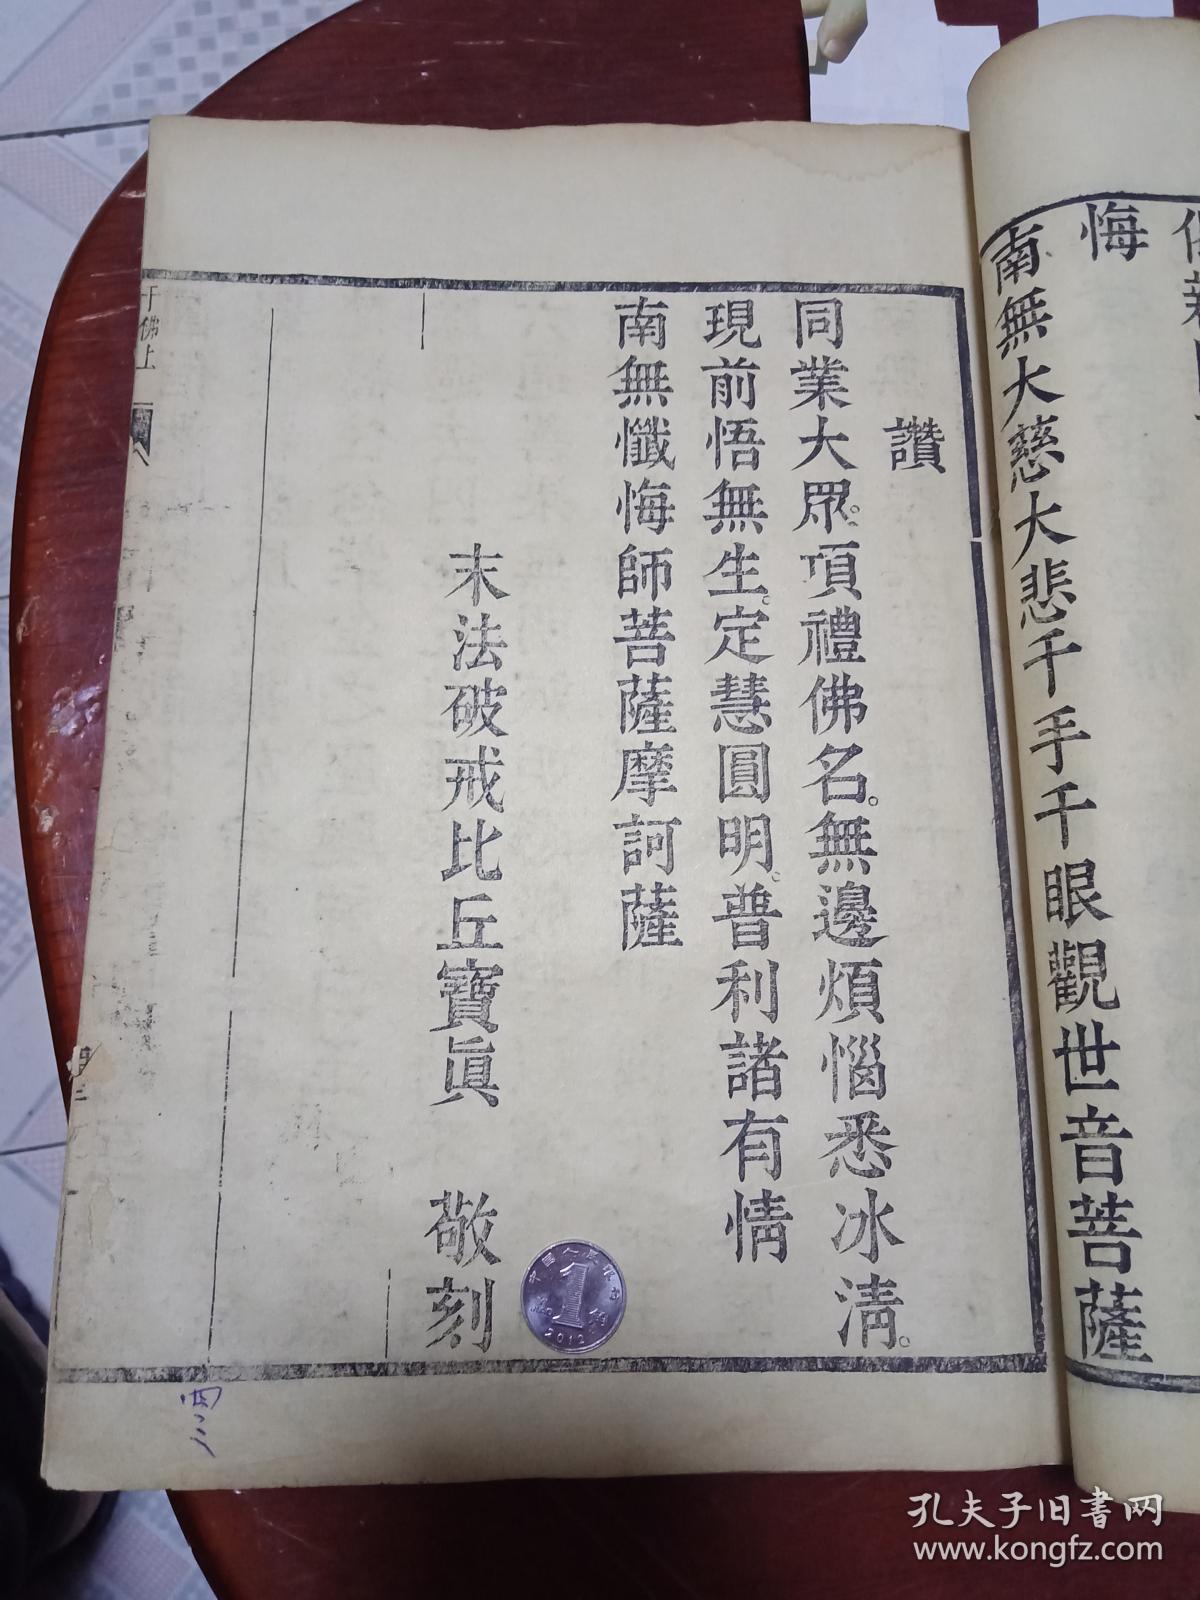 悔
南無大慈大悲千手千眼觀世音菩薩
讚
同業大眾。項禮佛名。無邊煩惱悉冰清。
現前悟無生。定慧圓明。普利諸有情
南無懺悔師菩薩摩訶薩
末法破戒比丘寶眞 敬刻
千佛上
中国人民银行
1
角
2012
孔夫子旧书网
www.kongfz.com